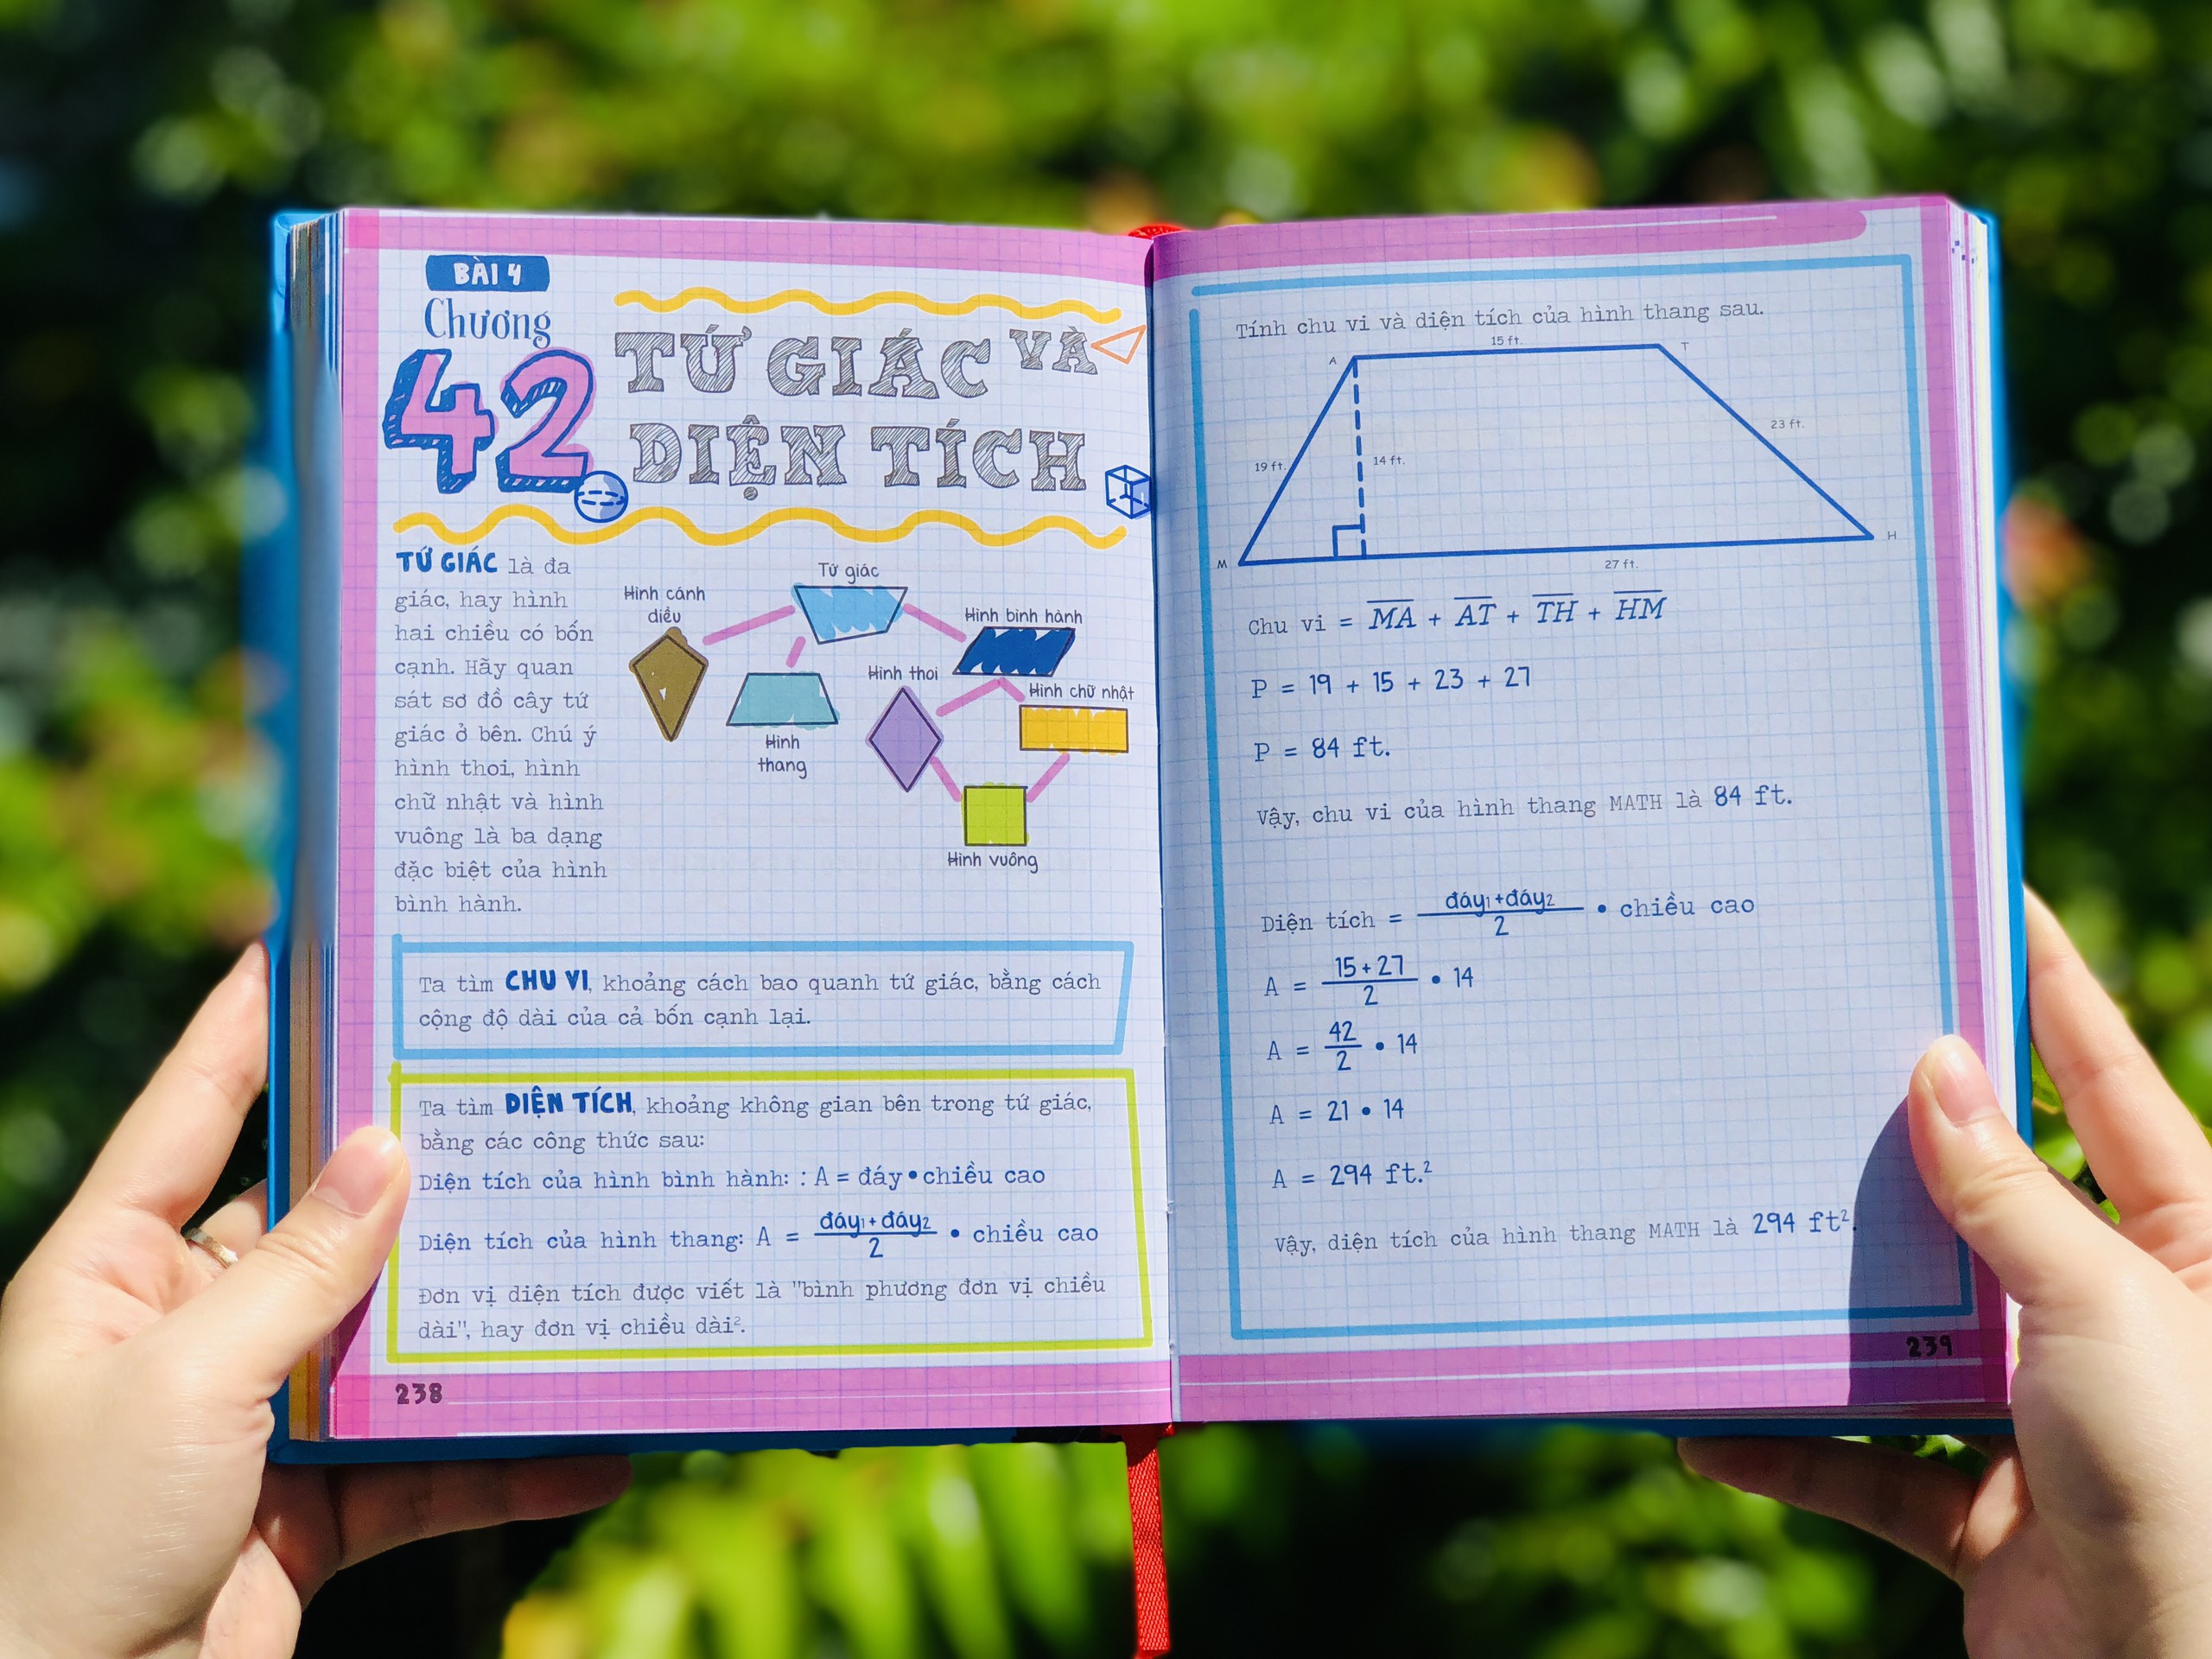 BÀI 4
Chương
42
TỨ GIÁC VÀ
DIỆN TÍCH
TỨ GIÁC là đa
giác, hay hình
hai chiều có bốn
cạnh. Hãy quan
sát sơ đồ cây tứ
giác ở bên. Chú ý
hình thoi, hình
chữ nhật và hình
vuông là ba dạng
đặc biệt của hình
bình hành.
Tứ giác
Hình cánh
diều
Hình bình hành
Hình thoi
Hình chữ nhật
Hình
thang
Hình vuông
Ta tìm CHU VI, khoảng cách bao quanh tứ giác, bằng cách
cộng độ dài của cả bốn cạnh lại.
Ta tìm DIỆN TÍCH, khoảng không gian bên trong tứ giác,
bằng các công thức sau:
Diện tích của hình bình hành: : A = đáy • chiều cao
Diện tích của hình thang: A = (đáy₁ + đáy₂)/2 • chiều cao
Đơn vị diện tích được viết là "bình phương đơn vị chiều
dài", hay đơn vị chiều dài².
238
Tính chu vi và diện tích của hình thang sau.
15 ft.
A
T
23 ft.
19 ft.
14 ft.
M
H
27 ft.
Chu vi = MA + AT + TH + HM
P = 19 + 15 + 23 + 27
P = 84 ft.
Vậy, chu vi của hình thang MATH là 84 ft.
Diện tích = (đáy₁+đáy₂)/2 • chiều cao
A = (15+27)/2 • 14
A = 42/2 • 14
A = 21 • 14
A = 294 ft.²
Vậy, diện tích của hình thang MATH là 294 ft².
239